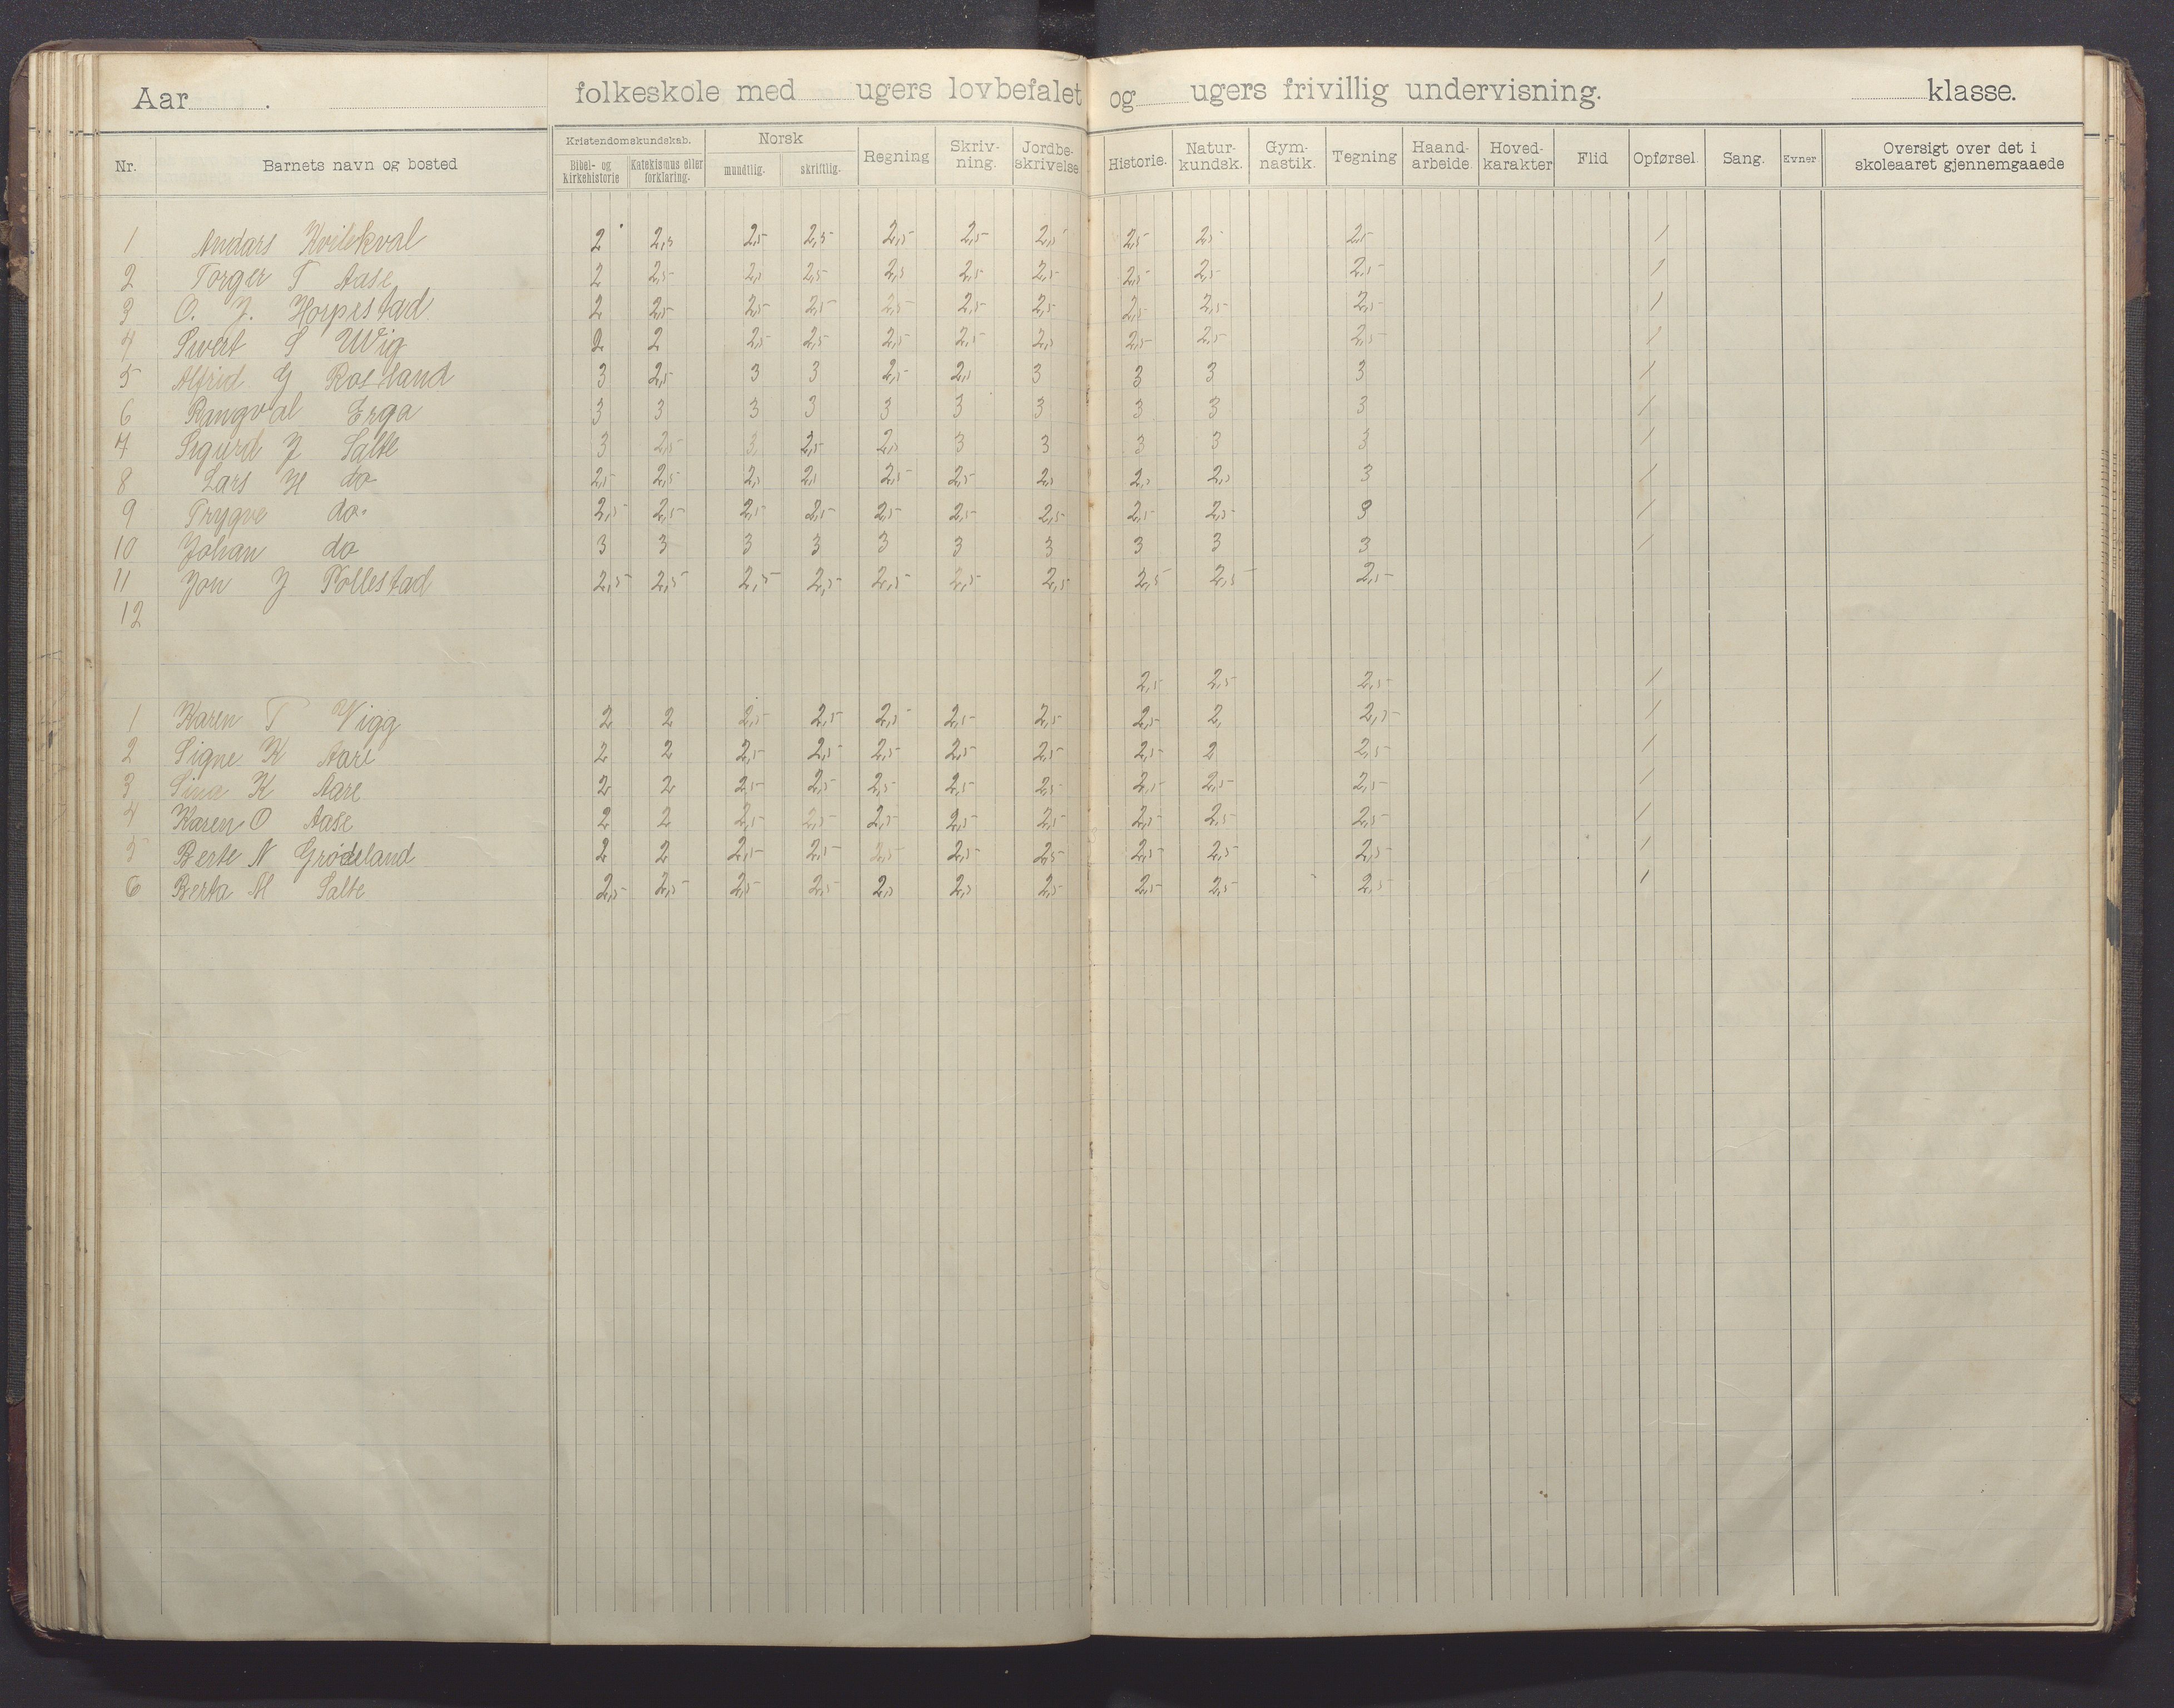 Aar . folkeskole med ugers lovbefalet og ugers frivillig undervisning. klasse.
Nr. Barnets navn og bosted Kristendomskundskab. Bibel- og kirkehistorie Katekismus eller forklaring. Norsk mundtlig. skriftlig. Regning Skriv-ning. Jordbe-skrivelse Historie. Natur-kundsk. Gym-nastik. Tegning Haand-arbeide. Hoved-karakter Flid Opførsel. Sang. Evner Oversigt over det i skoleaaret gjennemgaaede
1 Andars Kvilekval 2 2,5 2,5 2,5 2,5 2,5 2,5 2,5 2,5 2,5 1
2 Torger T Aase 2 2,5 2,5 2,5 2,5 2,5 2,5 2,5 2,5 2,5 1
3 O. J. Horpestad 2 2,5 2,5 2,5 2,5 2,5 2,5 2,5 2,5 2,5 1
4 Sivert S Wig 2 2 2,5 2,5 2,5 2,5 2,5 2,5 2,5 2,5 1
5 Alfrid G Rosland 3 2,5 3 3 2,5 2,5 3 3 3 3 1
6 Rangval Erga 3 3 3 3 3 3 3 3 3 3 1
7 Sigurd J Salte 3 2,5 3 2,5 2,5 3 3 3 3 3 1
8 Lars H do 2,5 2,5 2,5 2,5 2,5 2,5 2,5 2,5 2,5 3 1
9 Trygve do. 2,5 2,5 2,5 2,5 2,5 2,5 2,5 2,5 2,5 3 1
10 Johan do 3 3 3 3 3 3 3 3 3 3 1
11 Jon J Tollestad 2,5 2,5 2,5 2,5 2,5 2,5 2,5 2,5 2,5 2,5
12
2,5 2,5 2,5 1
1 Karen T Vigg 2 2 2,5 2,5 2,5 2,5 2,5 2,5 2, 2,5 1
2 Signe K Aare 2 2 2,5 2,5 2,5 2,5 2,5 2,5 2 2,5 1
3 Sina K Aare 2 2 2,5 2,5 2,5 2,5 2,5 2,5 2,5 2,5 1
4 Karen O Aase 2 2 2,5 2,5 2,5 2,5 2,5 2,5 2,5 2,5 1
5 Berte N Grødeland 2 2 2,5 2,5 2,5 2,5 2,5 2,5 2,5 2,5 1
6 Berta M Salte 2,5 2,5 2,5 2,5 2,5 2,5 2,5 2,5 2,5 2,5 1